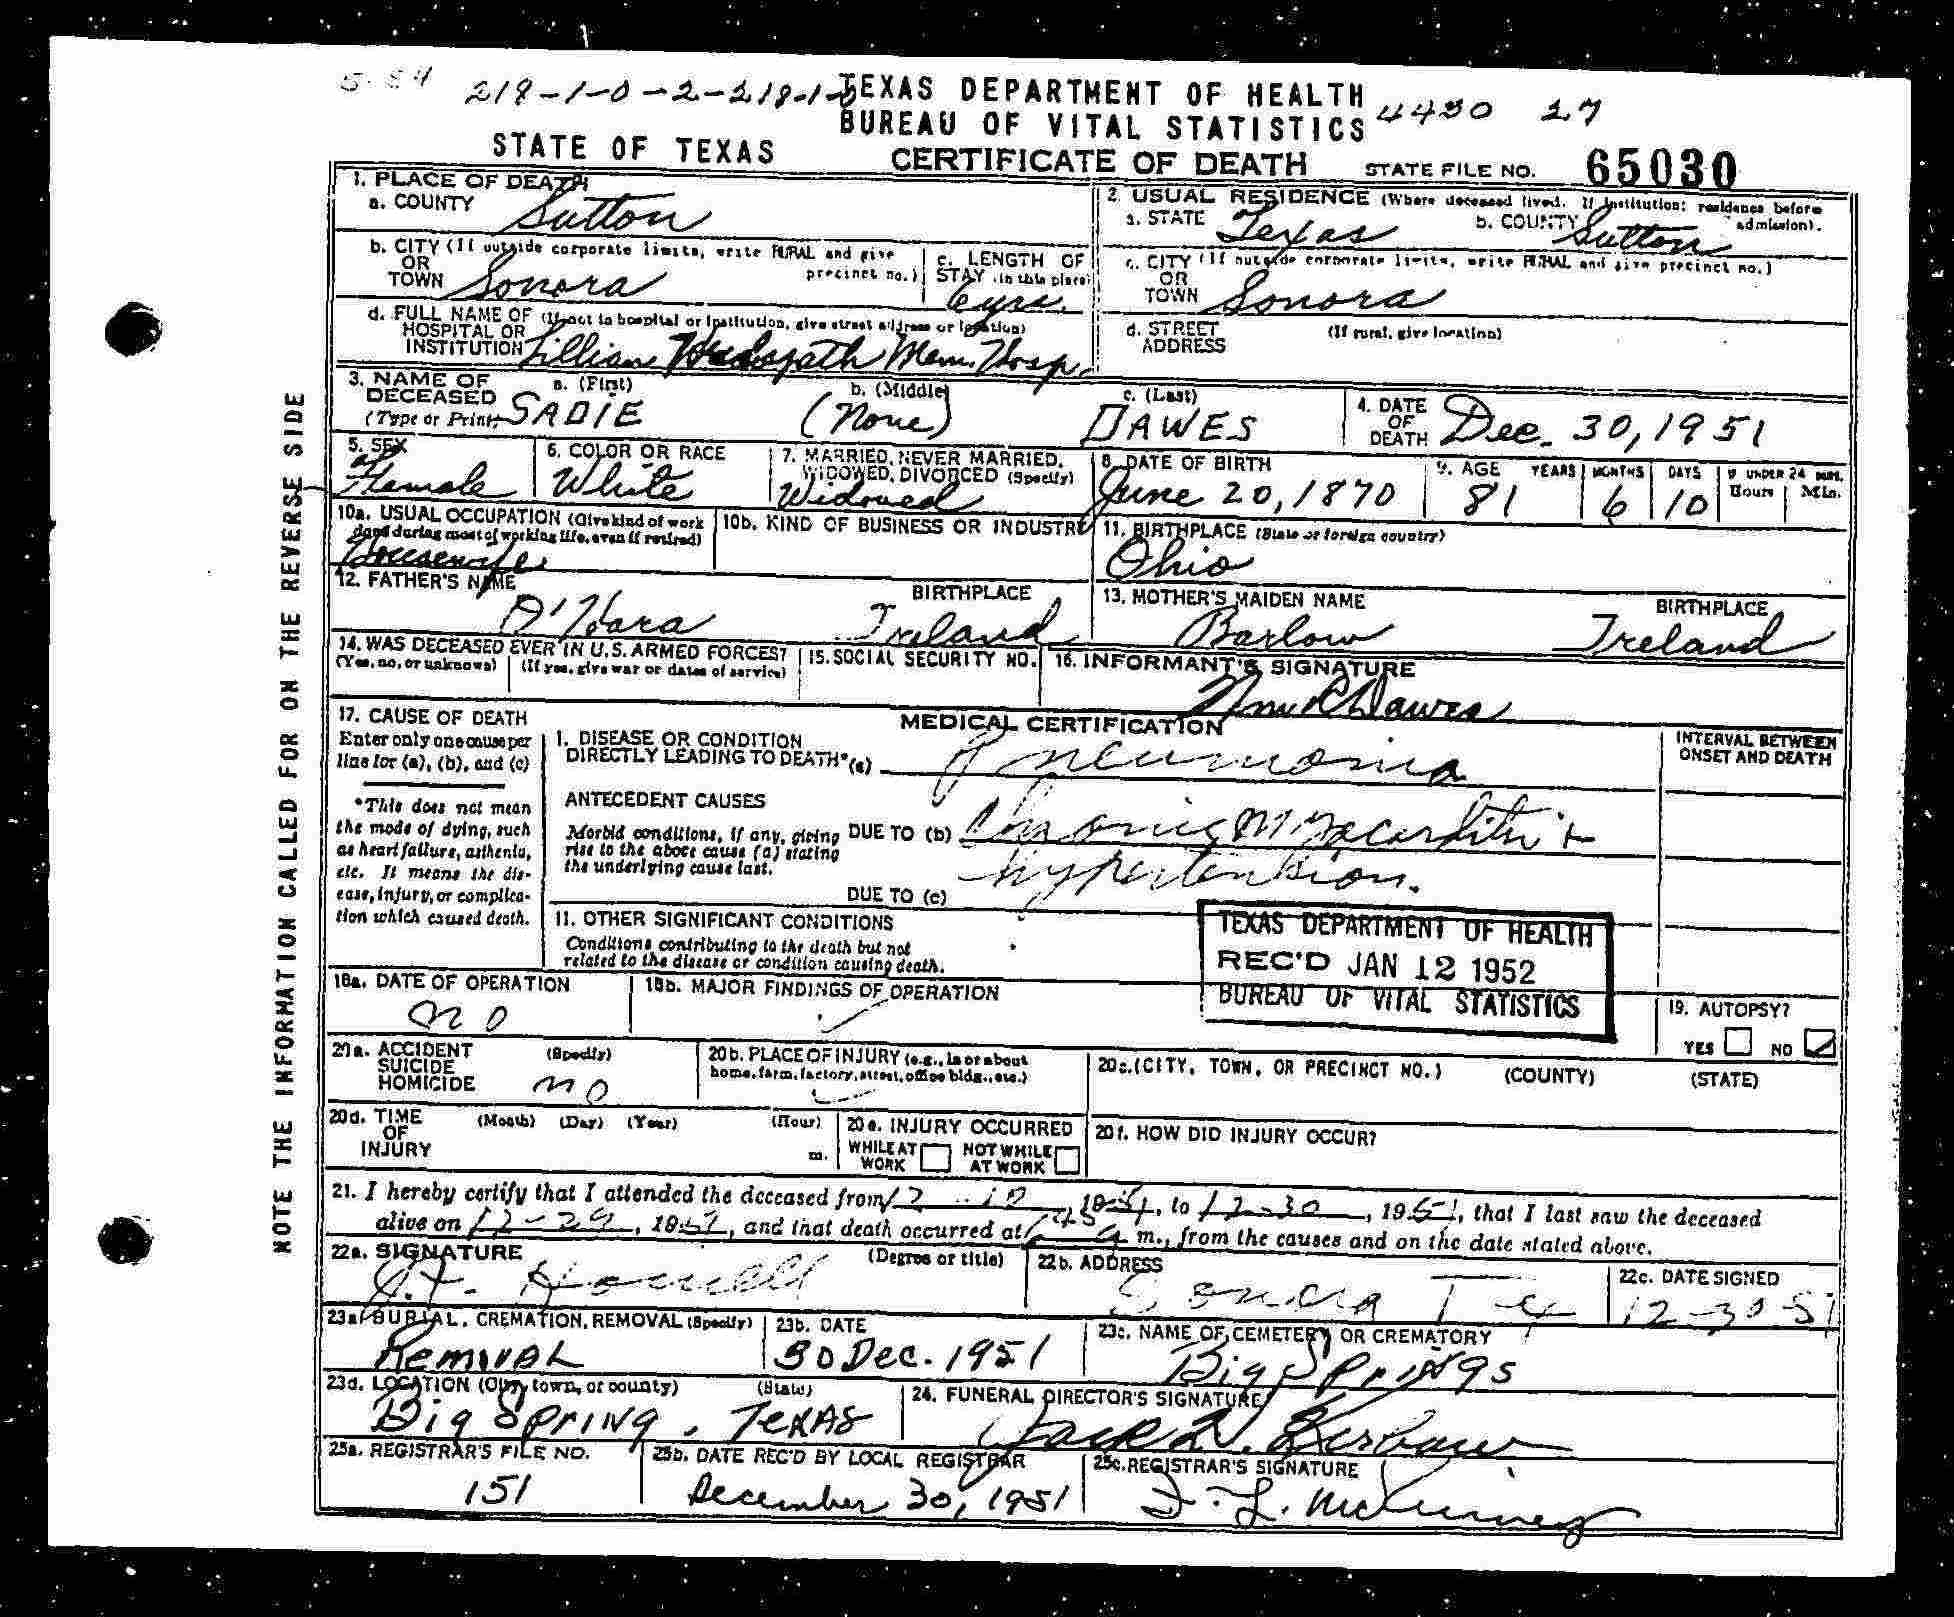 218-1-0-2-218-1-0 TEXAS DEPARTMENT OF HEALTH 4430 27
BUREAU OF VITAL STATISTICS
STATE OF TEXAS CERTIFICATE OF DEATH STATE FILE NO. 65030
1. PLACE OF DEATH
a. COUNTY Sutton
2. USUAL RESIDENCE (Where deceased lived. If institution: residence before admission).
a. STATE Texas b. COUNTY Sutton
b. CITY (If outside corporate limits, write RURAL and give precinct no.)
OR
TOWN Sonora
c. LENGTH OF
STAY (in this place) 6 yrs.
c. CITY (If outside corporate limits, write RURAL and give precinct no.)
OR
TOWN Sonora
d. FULL NAME OF (If not in hospital or institution, give street address or location)
HOSPITAL OR
INSTITUTION Lillian Mem. Hosp.
d. STREET (If rural, give location)
ADDRESS
3. NAME OF a. (First) b. (Middle) c. (Last)
DECEASED
(Type or Print) SADIE (None) DAWES
4. DATE
OF
DEATH Dec. 30, 1951
5. SEX
Female
6. COLOR OR RACE
White
7. MARRIED, NEVER MARRIED,
WIDOWED, DIVORCED (Specify)
Widowed
8. DATE OF BIRTH
June 20, 1870
9. AGE YEARS MONTHS DAYS IF UNDER 24 HRS.
Hours Min.
81 6 10
10a. USUAL OCCUPATION (Give kind of work
done during most of working life, even if retired)
Housewife
10b. KIND OF BUSINESS OR INDUSTRY
11. BIRTHPLACE (State or foreign country)
Ohio
12. FATHER'S NAME BIRTHPLACE
O'Hara Ireland
13. MOTHER'S MAIDEN NAME BIRTHPLACE
Barlow Ireland
14. WAS DECEASED EVER IN U.S. ARMED FORCES?
(Yes, no, or unknown) (If yes, give war or dates of service)
15. SOCIAL SECURITY NO.
16. INFORMANT'S SIGNATURE
Dawes
17. CAUSE OF DEATH
Enter only one cause per
line for (a), (b), and (c)
*This does not mean
the mode of dying, such
as heart failure, asthenia,
etc. It means the dis-
ease, injury, or complica-
tion which caused death.
MEDICAL CERTIFICATION
INTERVAL BETWEEN
ONSET AND DEATH
I. DISEASE OR CONDITION
DIRECTLY LEADING TO DEATH* (a) Pneumonia
ANTECEDENT CAUSES
Morbid conditions, if any, giving
rise to the above cause (a) stating
the underlying cause last.
DUE TO (b) Chronic Myocarditis +
hypertension.
DUE TO (c)
II. OTHER SIGNIFICANT CONDITIONS
Conditions contributing to the death but not
related to the disease or condition causing death.
TEXAS DEPARTMENT OF HEALTH
REC'D JAN 12 1952
BUREAU OF VITAL STATISTICS
18a. DATE OF OPERATION
no
18b. MAJOR FINDINGS OF OPERATION
19. AUTOPSY?
YES NO
20a. ACCIDENT (Specify)
SUICIDE
HOMICIDE no
20b. PLACE OF INJURY (e.g., in or about
home, farm, factory, street, office bldg., etc.)
20c. (CITY, TOWN, OR PRECINCT NO.) (COUNTY) (STATE)
20d. TIME (Month) (Day) (Year) (Hour)
OF
INJURY m.
20e. INJURY OCCURRED
WHILE AT NOT WHILE
WORK AT WORK
20f. HOW DID INJURY OCCUR?
21. I hereby certify that I attended the deceased from 12 1951, to 12-30, 1951, that I last saw the deceased
alive on 12-29, 1951, and that death occurred at a m., from the causes and on the date stated above.
22a. SIGNATURE (Degree or title)
J.F. Howell
22b. ADDRESS
Sonora Tex
22c. DATE SIGNED
12-30-51
23a. BURIAL, CREMATION, REMOVAL (Specify)
REMOVAL
23b. DATE
30 Dec. 1951
23c. NAME OF CEMETERY OR CREMATORY
Big Springs
23d. LOCATION (City, town, or county) (State)
Big Spring, Texas
24. FUNERAL DIRECTOR'S SIGNATURE
Jack Kerbow
25a. REGISTRAR'S FILE NO.
151
25b. DATE REC'D BY LOCAL REGISTRAR
December 30, 1951
25c. REGISTRAR'S SIGNATURE
NOTE THE INFORMATION CALLED FOR ON THE REVERSE SIDE